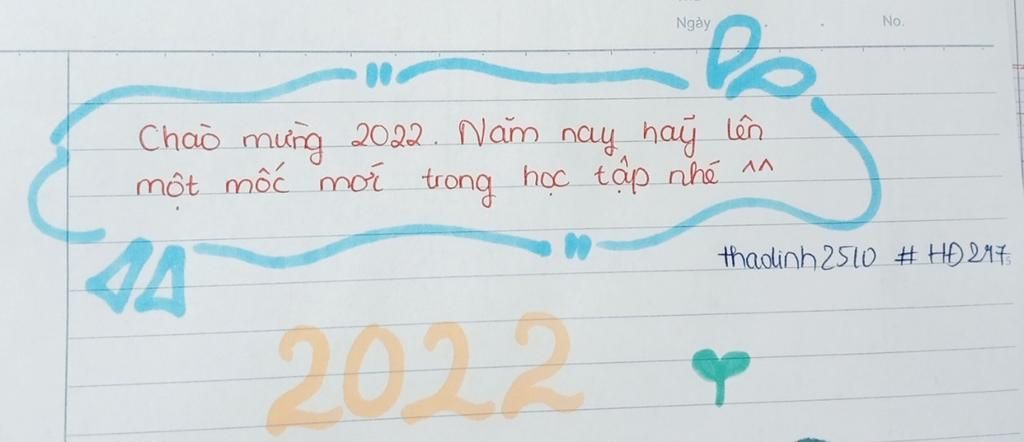 Ngày
No.
Chào mừng 2022. Năm nay hãy lên
một mốc mới trong học tập nhé ^^
thaolinh2510 # HĐ247
2022